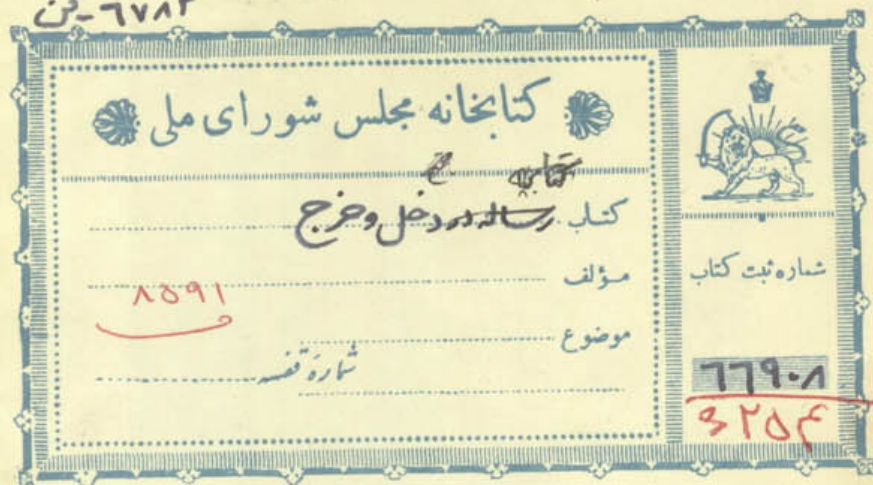 ۶۷۸۲ - فن
کتابخانه مجلس شورای ملی
کتابچه
کتاب رساله در دخل و خرج
مؤلف
۸۵۹۱
موضوع
شماره قفسه
شماره ثبت کتاب
۶۶۹۰۸